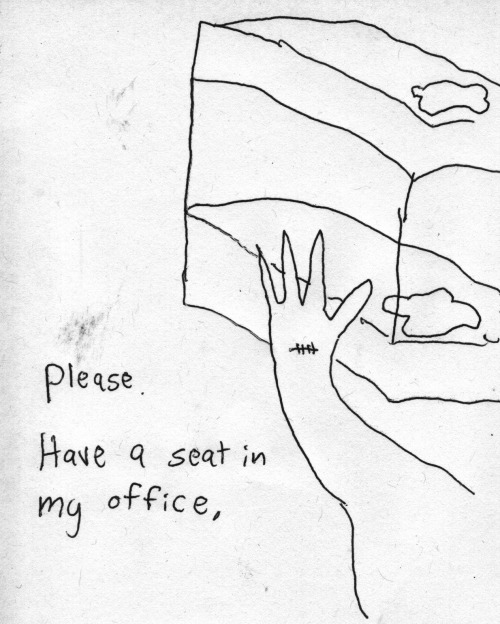 Please.
Have a seat in
my office,